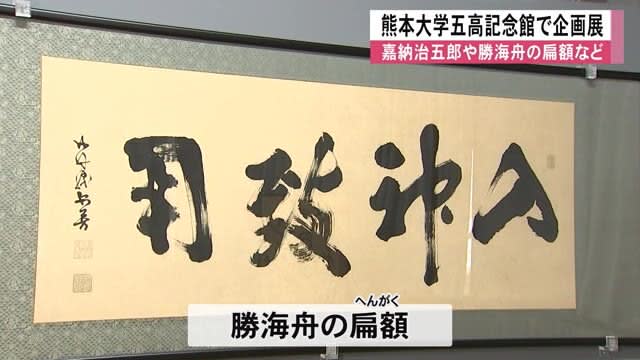 熊本大学五高記念館で企画展
嘉納治五郎や勝海舟の扁額など
入神致用
へんがく
勝海舟の扁額